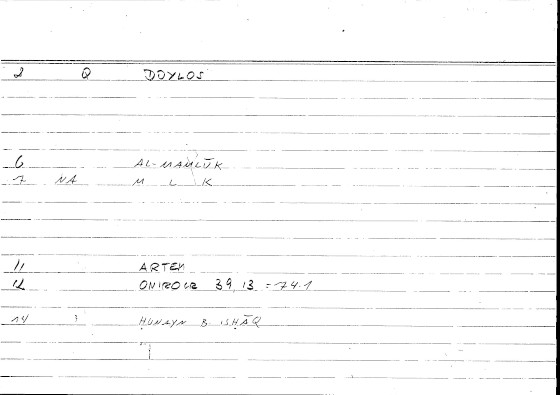 2 Q DOYLOS
6 AL-MAMLŪK
7 NA M L K
11 ARTEM
12 ONIROCR 39,13 = 74.1
14 HUNAYN B. ISḤĀQ